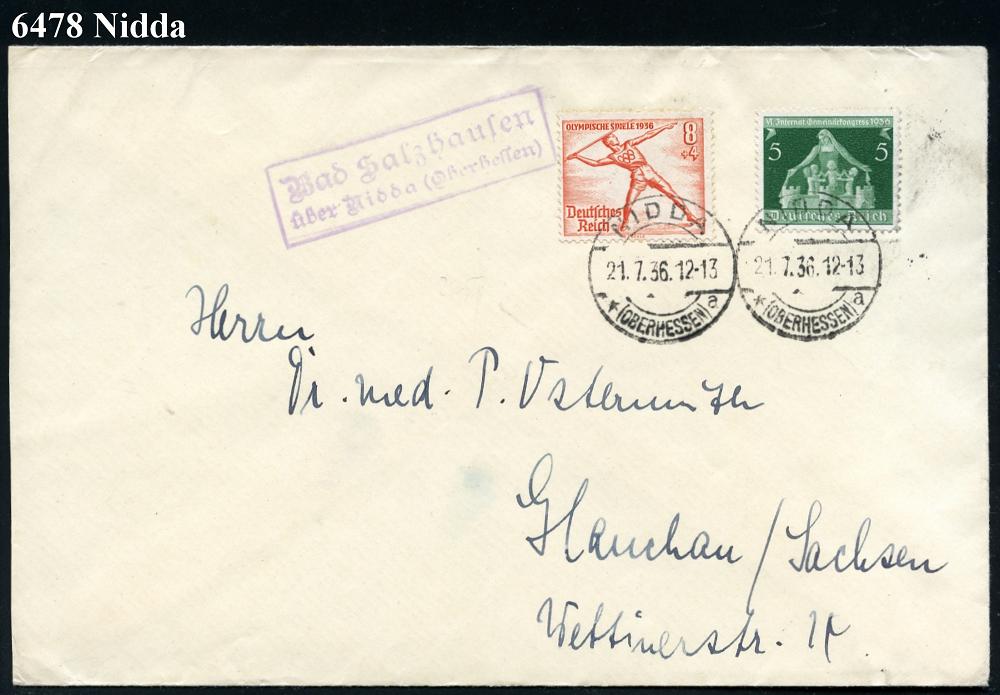 6478 Nidda
Bad Salzhausen
über Nidda (Oberhessen)
OLYMPISCHE SPIELE 1936
8
+4
Deutsches
Reich
VI. Internat. Gemeindekongress 1936
5 5
Deutsches Reich
NIDDA
21.7.36.12-13
* (OBERHESSEN) a
NIDDA
21.7.36.12-13
* (OBERHESSEN) a
Herrn
Dr. med. P.
Glauchau / Sachsen
Wettinerstr.